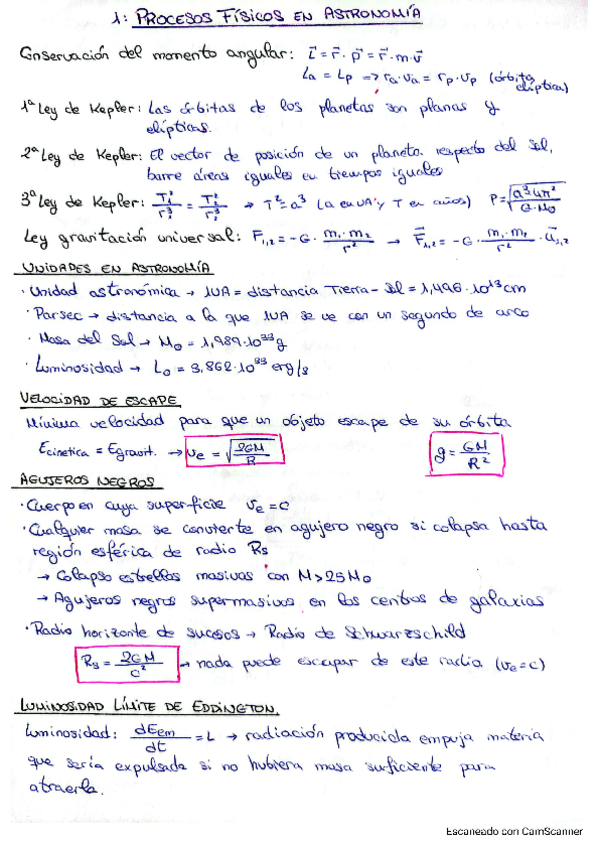 1: PROCESOS FÍSICOS EN ASTRONOMÍA
Conservación del momento angular: L⃗ = r⃗ · p⃗ = r⃗ · m · v⃗
La = Lp => ra · va = rp · vp (órbita elíptica)
1ª Ley de Kepler: Las órbitas de los planetas son planas y
elípticas.
2ª Ley de Kepler: El vector de posición de un planeta respecto del Sol,
barre áreas iguales en tiempos iguales
3ª Ley de Kepler: T²/r³ = T²/r³ → T² = a³ (a en UA y T en años) P = √(a³4π²/G·M⊙)
Ley gravitación universal: F1,2 = -G · m1·m2/r² → F⃗1,2 = -G · m1·m2/r² · u⃗1,2
UNIDADES EN ASTRONOMÍA
· Unidad astronómica → 1UA = distancia Tierra - Sol = 1,496 · 10¹³ cm
· Parsec → distancia a la que 1UA se ve con un segundo de arco
· Masa del Sol → M⊙ = 1,989 · 10³³ g
· Luminosidad → L⊙ = 3,862 · 10³³ erg/s
VELOCIDAD DE ESCAPE
Mínima velocidad para que un objeto escape de su órbita
Ecinetica = Egravit. → ve = √(2GM/R) g = GM/R²
AGUJEROS NEGROS
· Cuerpo en cuya superficie ve = c
· Cualquier masa se convierte en agujero negro si colapsa hasta
región esférica de radio Rs
→ Colapso estrellas masivas con M > 25M⊙
→ Agujeros negros supermasivos en los centros de galaxias
· Radio horizonte de sucesos → Radio de Schwarzschild
Rs = 2GM/c² → nada puede escapar de este radio (ve = c)
LUMINOSIDAD LÍMITE DE EDDINGTON.
Luminosidad: dEem/dt = L → radiación producida empuja materia
que sería expulsada si no hubiera masa suficiente para
atraerla.
Escaneado con CamScanner